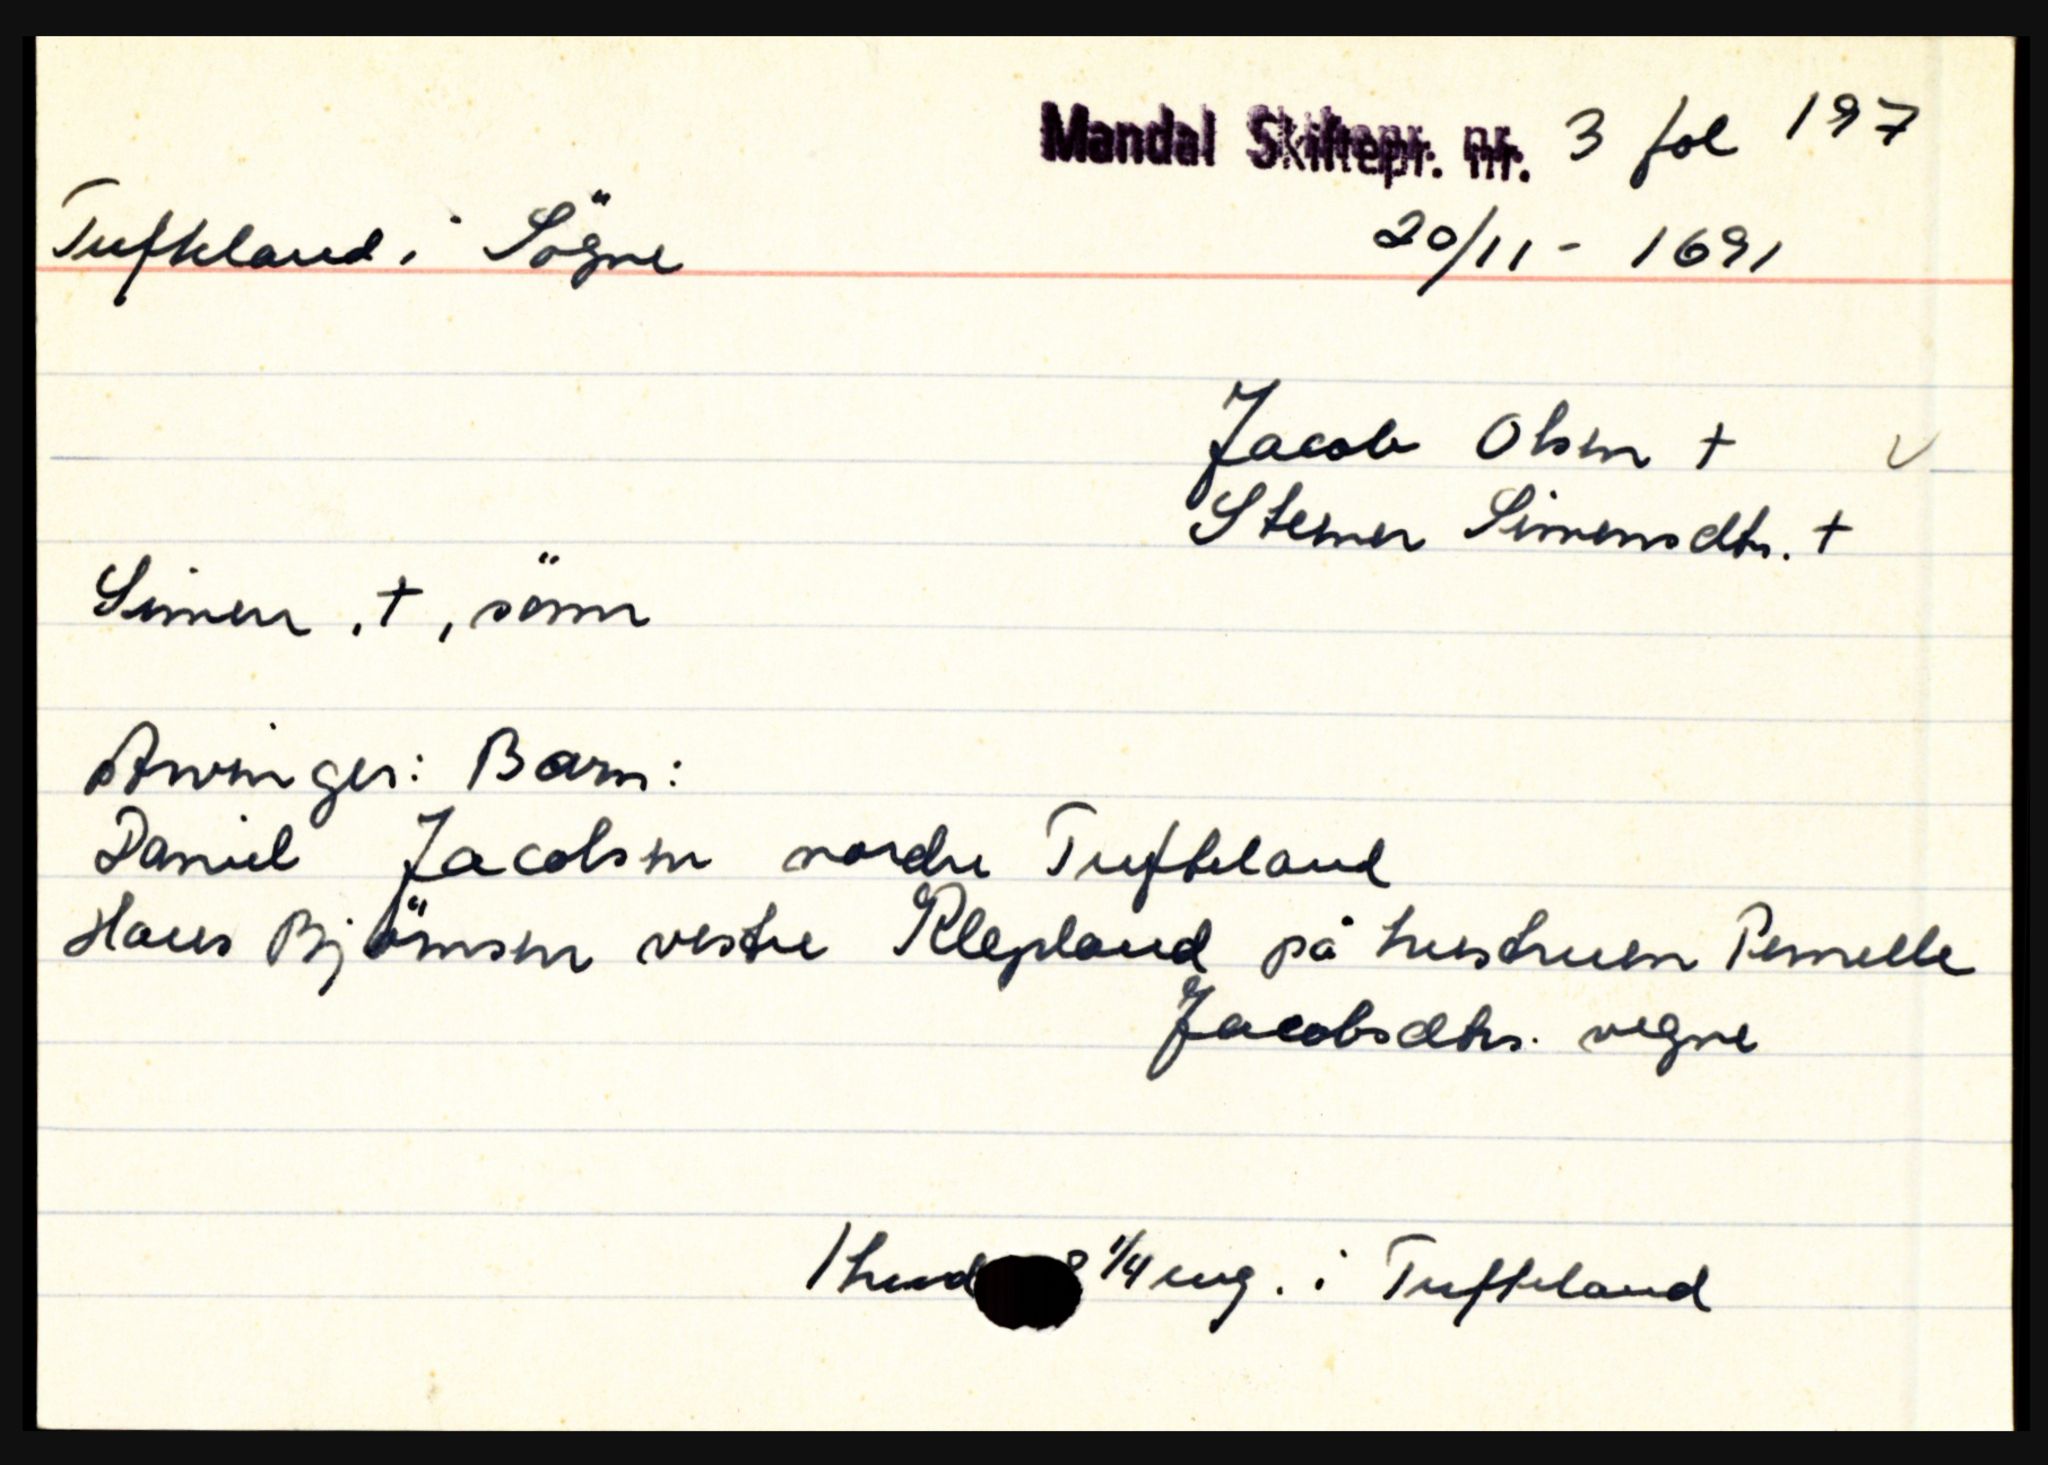 Mandal Skiftepr. nr. 3 fol 197
Tufteland i Sögne
20/11 - 1691
Jacob Olsen + v
Stener Simensdtr. +
Simen , + , sönn
Arvinger: Barn:
Daniel Jacobsen nordre Tufteland
Hans Björnsen vestre Klepland på hustruen Pernelle
Jacobsdtrs. vegne
1 hud 8 1/4 eng. i Tufteland